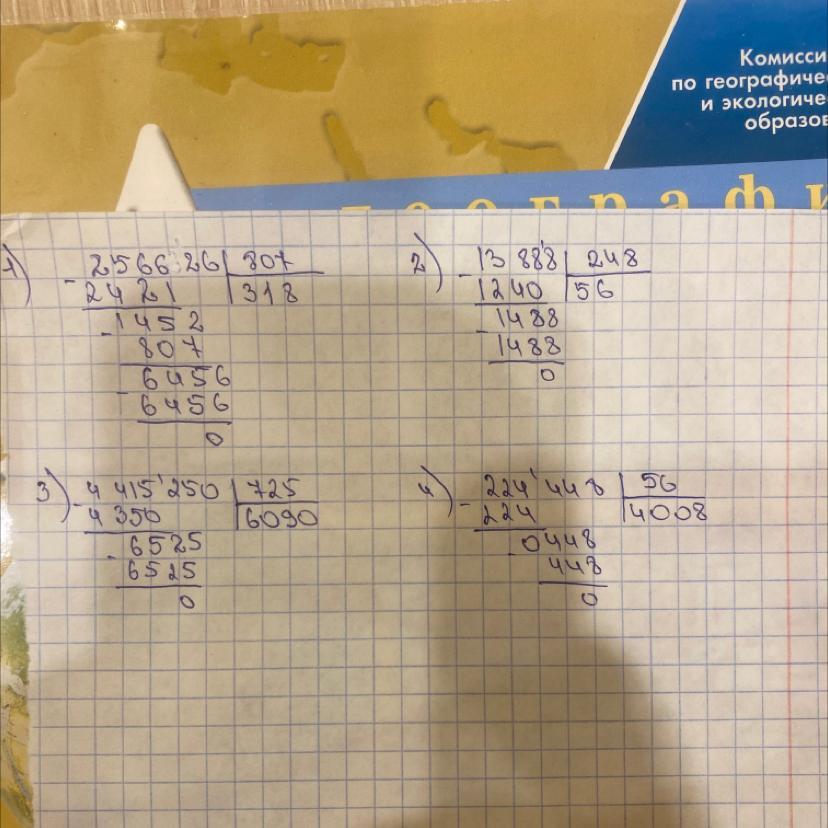 Комисси
по географичес
и экологичес
образов
географи
1) - 256626 | 807
2421 | 318
- 1452
807
- 6456
6456
0
2) - 13888 | 248
1240 | 56
- 1488
1488
0
3) - 4415250 | 725
4350 | 6090
- 6525
6525
0
4) - 224448 | 56
224 | 4008
- 0448
448
0